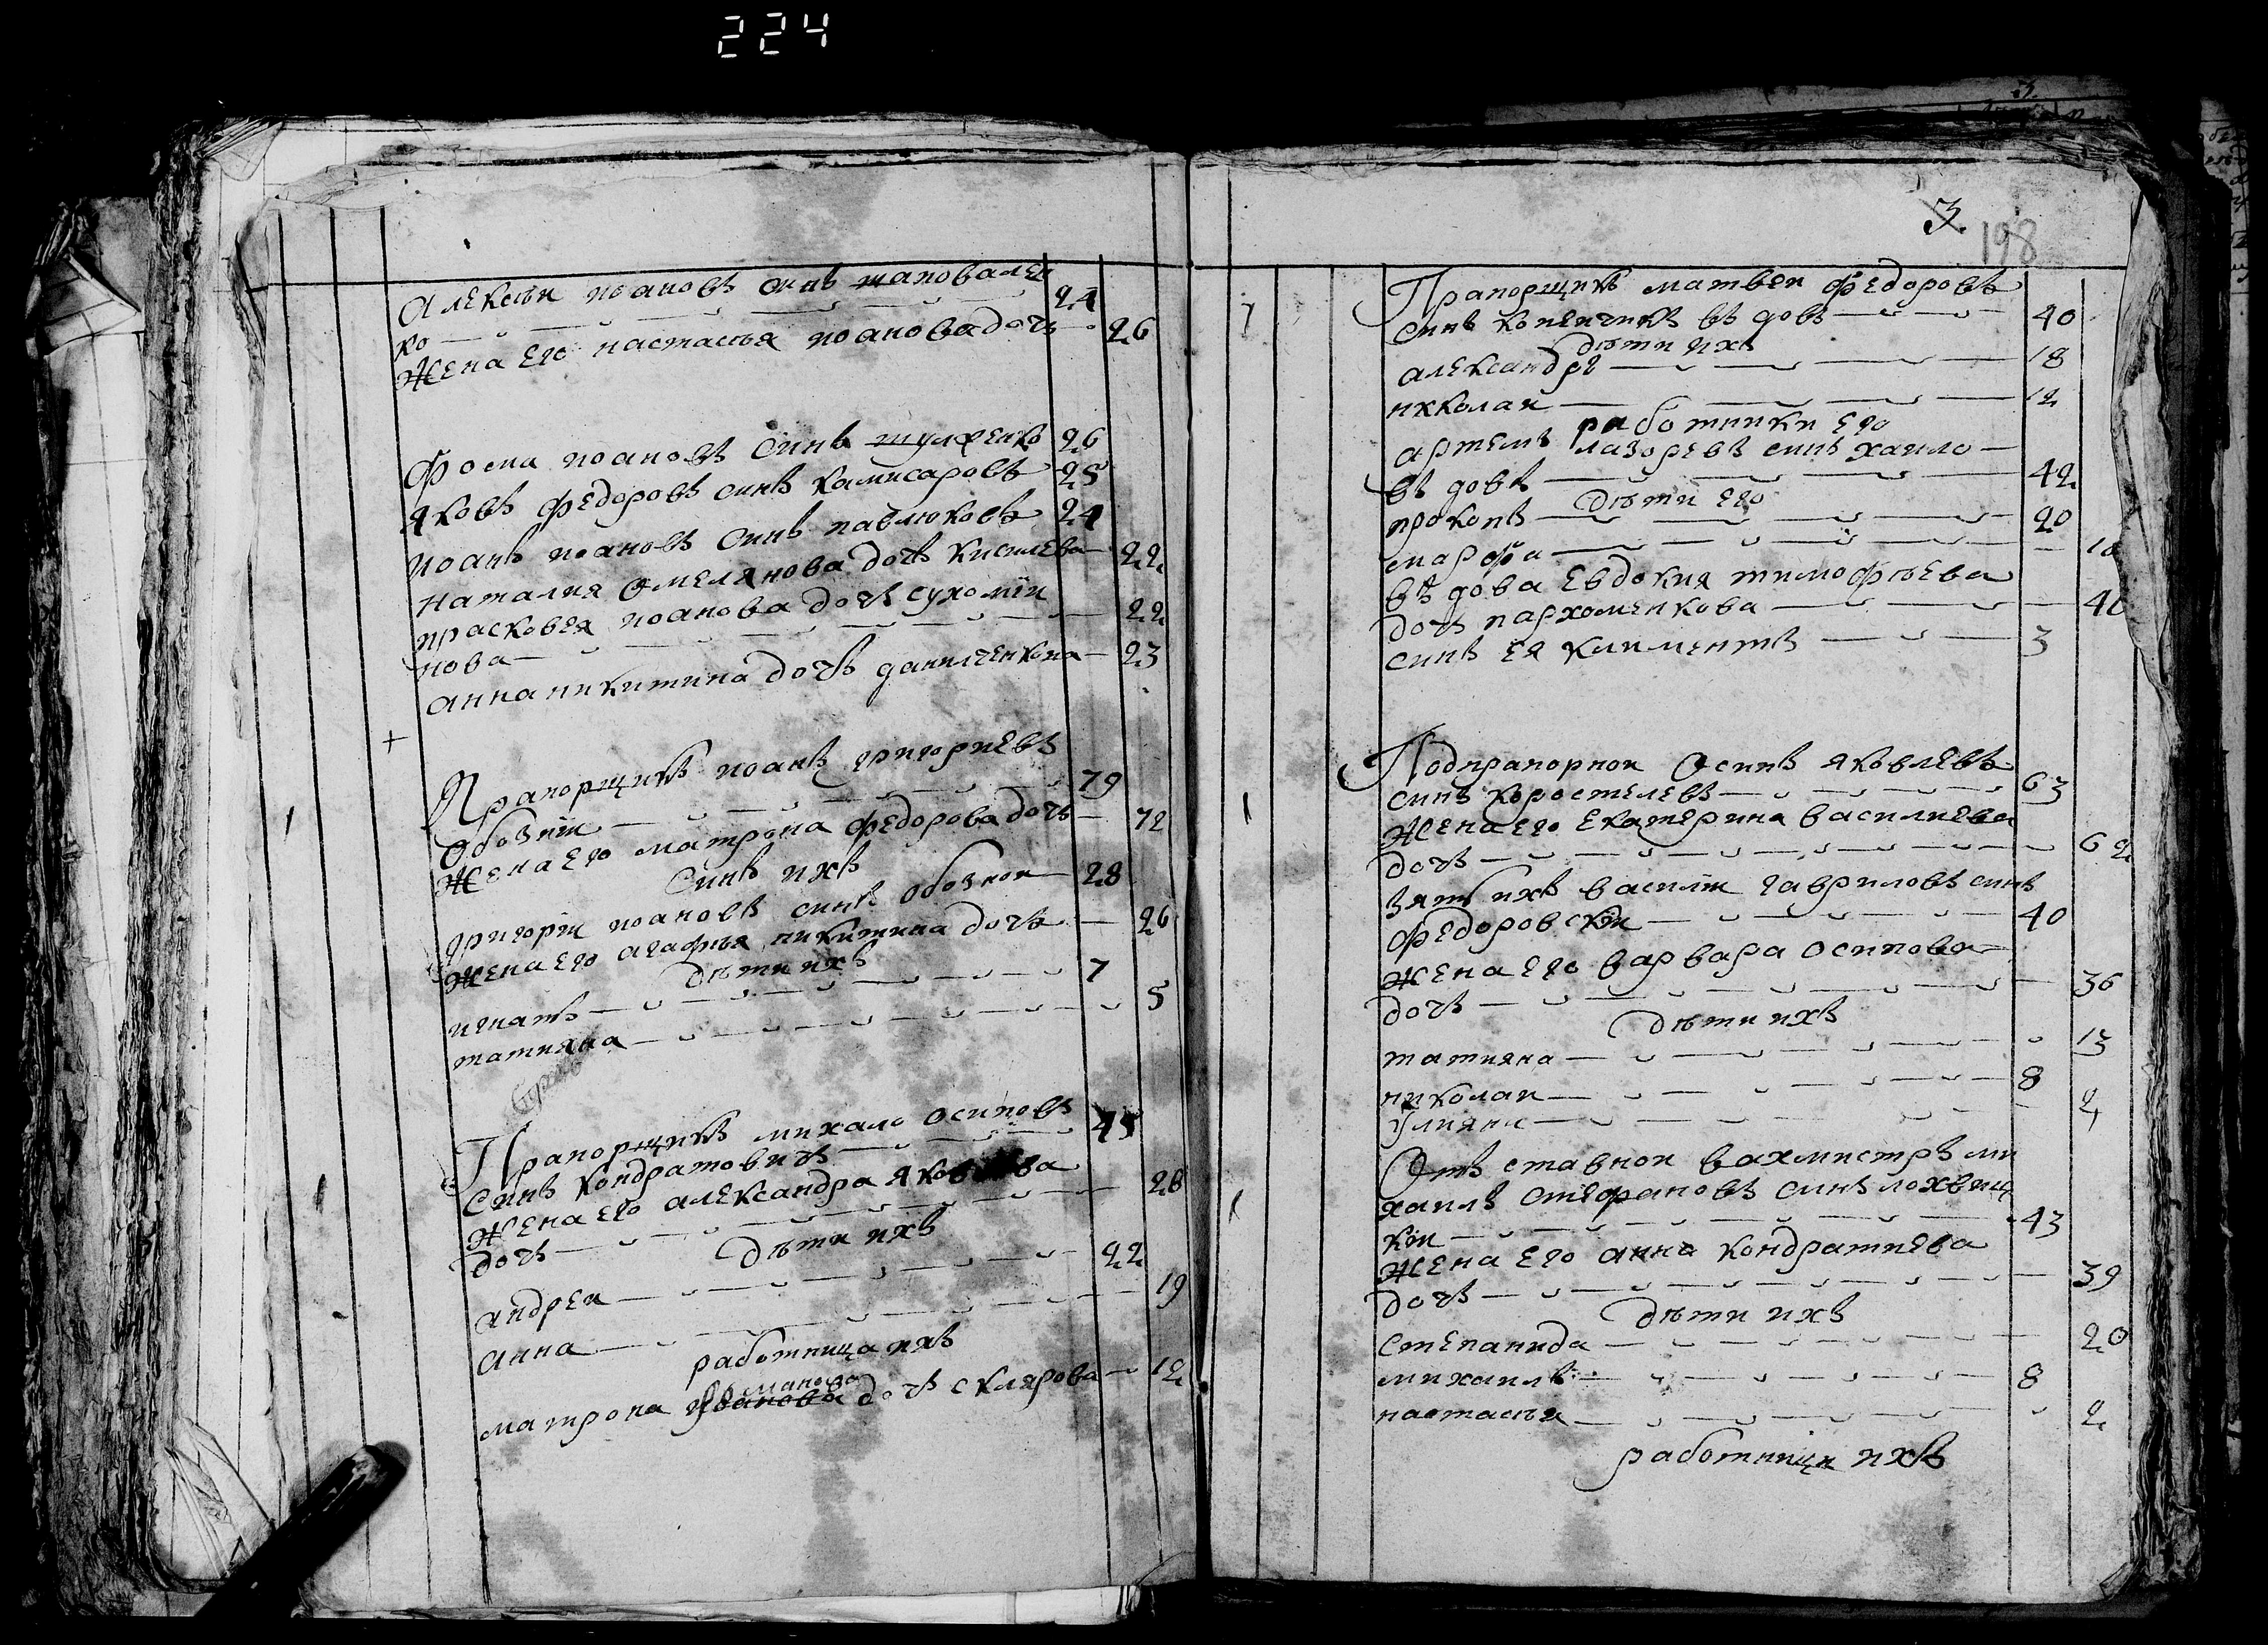 224
Алексѣи иоановъ синъ шаповален
ко 24
Жена Его настасѣя иоанова дочъ 26
Фома иоановъ синъ шулженко 26
Яковъ Федоровъ синъ камисаровъ 25
иоанъ иоановъ синъ павлюковъ 24
Наталия Омелянова дочъ кисилева 22
прасковея иоанова дочъ сухомли
нова 22
анна никитина дочъ данилченкова 23
+
Прапорщикъ иоанъ григориевъ
Обознiи 79
Жена Его матрона Федорова дочъ 72
синъ ихъ
григорiи иоановъ синъ Обознои 28
Жена Его агафѣя никитина дочъ 26
дѣти ихъ
игнатъ 7
татияна 5
Прапорщикъ михало осиповъ
синъ кондратовичъ 45
Жена Его александра яковлева
дочъ 28
дѣти ихъ
андреи 22
Анна 19
работница ихъ
матрона дочъ склярова 12
3.
198
Прапорщикъ матвеи Федоровъ
синъ копеичикъ въдовъ 40
дѣти ихъ
александръ 18
никколаи 12
работники Его
артемъ лазоревъ синъ хаило
въдовъ 42
дѣти Его
прокопъ 20
марфа 10
въдова Евдокия тимофѣева
дочъ пархоменкова
синъ Ея климентъ 3
Подпрапорнои Осипъ яковлевъ
синъ коростелевъ 63
Жена Его Екатерина василиева
дочъ 62
зятъ ихъ василiи гавриловъ синъ
Федоровскiи 40
Жена Его варвара осипова
дочъ 36
дѣти ихъ
татияна 13
николаи 8
Улияна 2
Отъ ставнои вахмистръ ми
хаилъ стефановъ синъ лохвиц
кiи 43
Жена Его анна кондратиева
дочъ 39
дѣти ихъ
степанида 20
михаилъ 8
настасѣя 2
работници ихъ